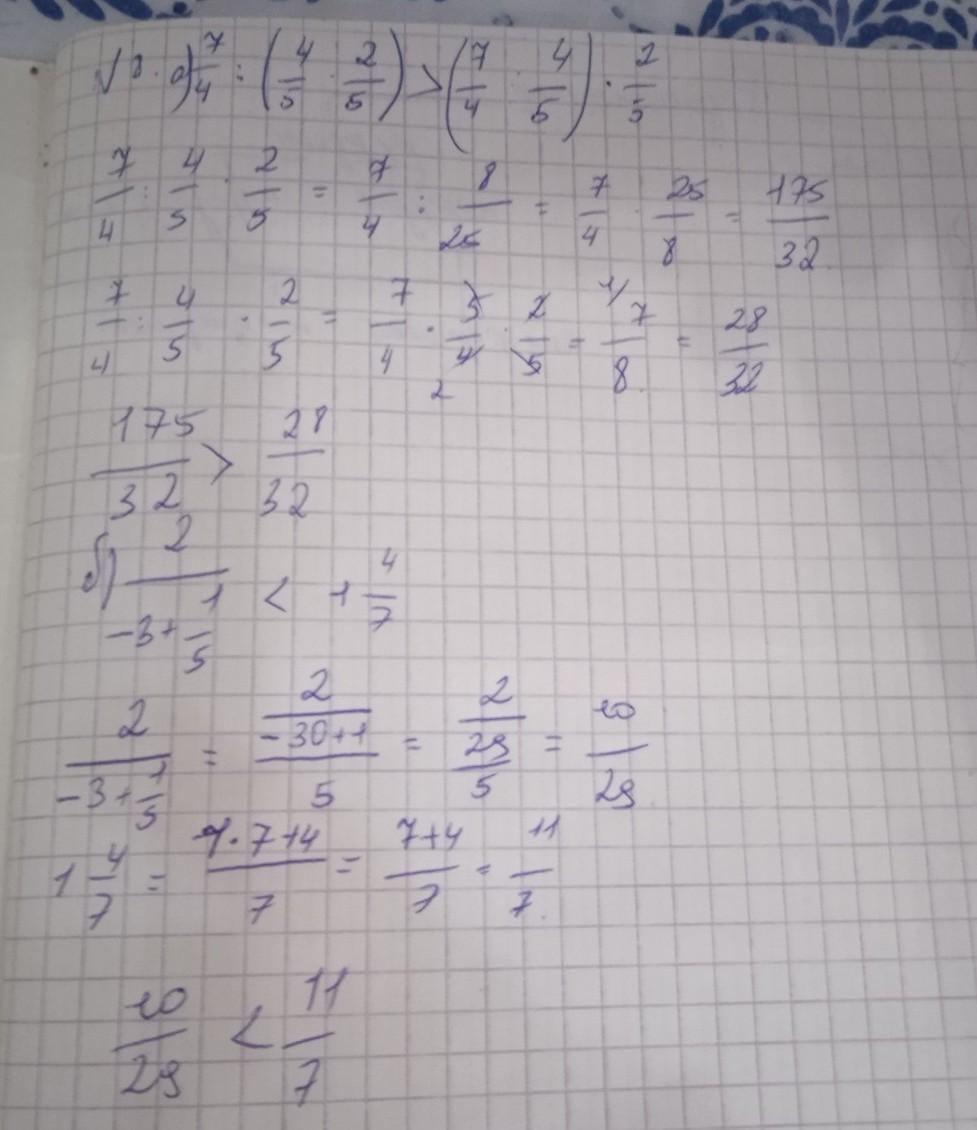 √8. а) 7/4 : (4/5 · 2/5) > (7/4 : 4/5) · 2/5
7/4 : 4/5 · 2/5 = 7/4 : 8/25 = 7/4 · 25/8 = 175/32
7/4 : 4/5 · 2/5 = 7/4 · 5/4 · 2/5 = 7/8 = 28/32
175/32 > 28/32
б) 2/(-3+1/5) < 1 4/7
2/(-3+1/5) = 2/((-30+1)/5) = 2/(29/5) = 10/29
1 4/7 = (1·7+4)/7 = (7+4)/7 = 11/7
10/29 < 11/7